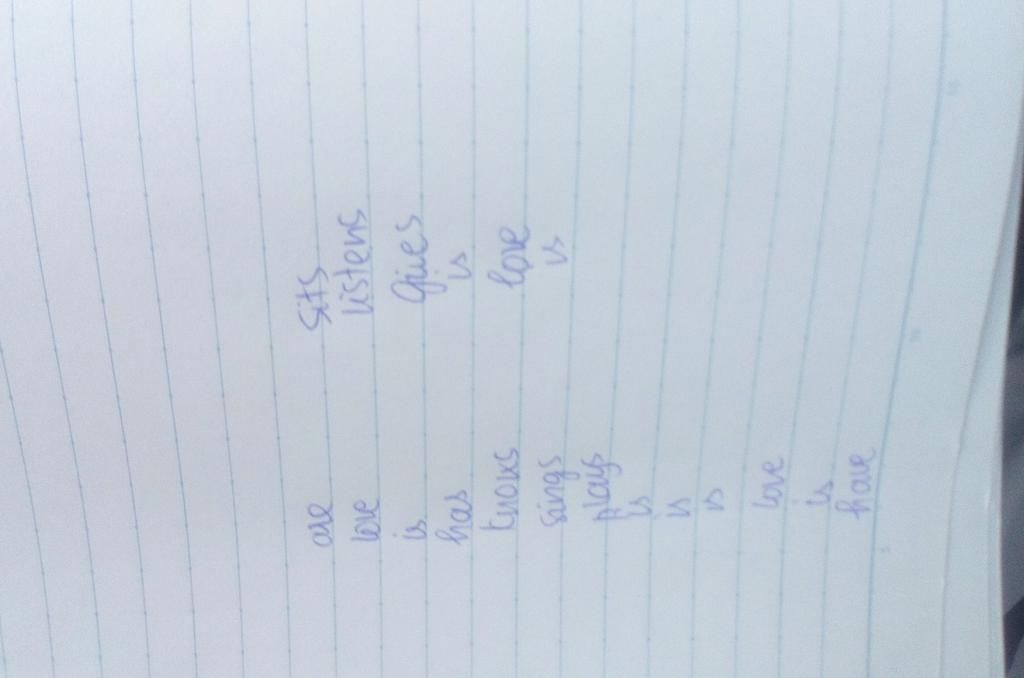 are
love
is
has
knows
sings
plays
is
is
is
love
is
have
Sits
listens
Gives
is
love
is